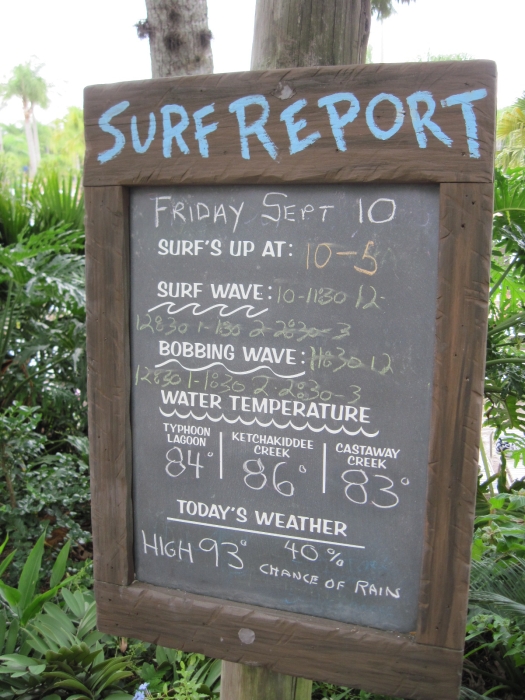 SURF REPORT
FRIDAY SEPT 10
SURF'S UP AT: 10-5
SURF WAVE: 10-11:30 12-
12:30 1-1:30 2-2:30-3
BOBBING WAVE: 11:30-12
12:30 1-1:30 2-2:30-3
WATER TEMPERATURE
TYPHOON LAGOON
84°
KETCHAKIDDEE CREEK
86°
CASTAWAY CREEK
83°
TODAY'S WEATHER
HIGH 93° 40%
CHANCE OF RAIN